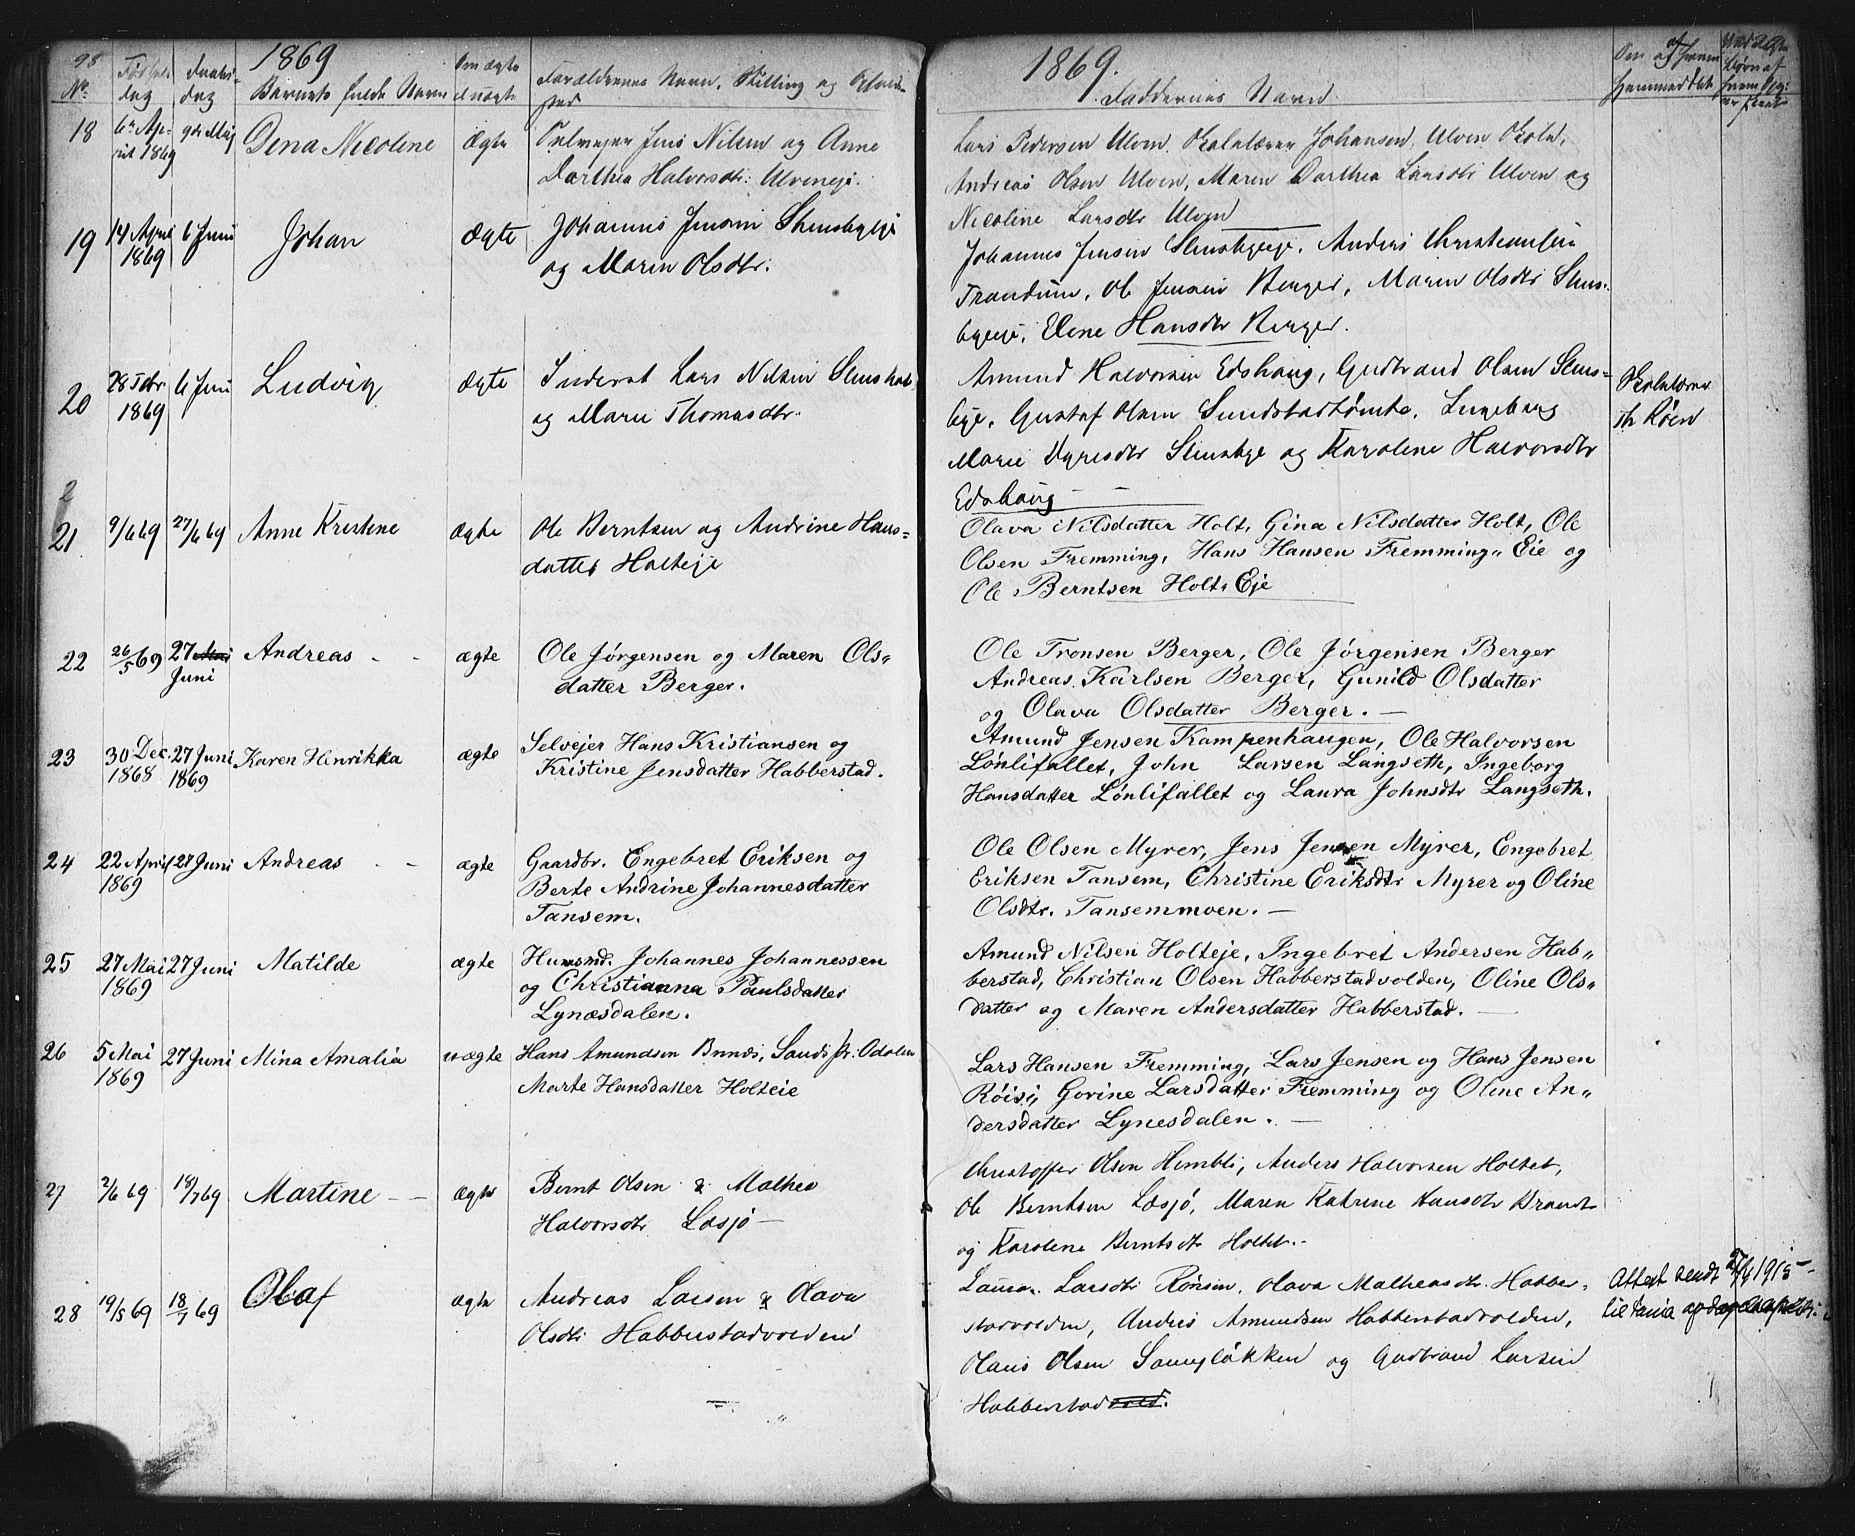 98 1869
No. Fødsels Daabs- Barnets fulde Navn Om ægte Forældrenes Navn, Stilling og Opholds-
dag dag el uægte sted
18 6te Ap- 9de Mai Dina Nicoline Ægte Selveyer Jens Nilsen og Anne
ril 1869 Dorthea Halvorsdtr. Ulveneje.
19 14 April 6 Juni Johan Ægte Johannes Jensen Stensbyeje
1869 og Maren Olsdtr.
20 28 Febr 6 Juni Ludvig Ægte Inderst Lars Nilsen
1869 og Marie Thomasdtr.
21 9/6 69 27/6 69 Anne Kristine Ægte Ole Berntsen og Andrine Hans=
datter Holteje
22 26/5 69 27 Mai Andreas - - ægte Ole Jørgensen og Maren Ols„
Juni datter Berger.
23 30 Dec. 27 Juni Karen Henrikka ægte Selvejer Hans Kristiansen og
1868 1869 Kristine Jensdatter Habberstad.
24 22 April 27 Juni Andreas - - ægte Gaardbr. Engebret Eriksen og
1869 Berte Andrine Johannesdatter
Tansem.
25 27 Mai 27 Juni Matilde ægte Husmd. Johannes Johannessen
1869 og Christianna Paulsdatter
Lynæsdalen.
26 5 Mai 27 Juni Mina Amalia uægte Hans Amundsen Sands pr: Odalen
1869 Marte Hansdatter Holteie
27 2/6 69 18/7 69 Martine - - ægte Bernt Olsen & Mathea
Halvorsdtr Læsjø -
28 19/5 69 18/7 69 Olaf ægte Andreas Larsen & Olava
Olsdtr Habberstadvolden
1869.
Faddernes Navn.
Lars Pedersen Ulven, Skolelærer Johansen, Ulven Skole,
Andreas Olsen Ulven, Maren Dorthea Larsdtr Ulven og
Nicoline Larsdtr Ulven
Johannes Jensen Stensbyeje. Anders Christiansen
Trandum, Ole Jensen Berger, Maren Olsdtr Stens-
byeje, Elene Hansdtr Berger.
Amund Halvorsen Edshaug, Gudbrand Olsen Stens= Skolelærer
bye, Gustaf Olsen Sundstadtomte, Ingeborg Th Røen
Marie Dyresdtr Stensbye og Karoline Halvorsdtr
Edshaug - -
Olava Nilsdatter Holt, Gina Nilsdatter Holt, Ole
Olsen Fremming, Hans Hansen Fremming„ Eie og
Ole Berntsen Holts Eje
Ole Tronsen Berger, Ole Jørgensen Berger
Andreas Karlsen Berger, Gunild Olsdatter
og Olava Olsdatter Berger. -
Amund Jensen Kampenhaugen, Ole Halvorsen
Lønlifallet, John Larsen Langseth, Ingeborg
Hansdatter Lønlifallet og Laura Johnsdtr Langseth.
Ole Olsen Myrer, Jens Jensen Myrer, Engebret
Eriksen Tansem, Christine Eriksdtr Myrer og Oline
Olsdtr. Tansemmoen. -
Amund Nilsen Holteje, Ingebret Andersen Hab„
berstad, Christian Olsen Habberstadvolden, Oline Ols„
datter og Maren Andersdatter Habberstad. -
Lars Hansen Fremming, Lars Jensen og Hans Jensen
Røisi, Gorine Larsdatter Fremming og Oline An„
dersdatter Lynesdalen. -
Christoffer Olsen Himbli, Anders Halvorsen Holtet,
Ole Berntsen Læsjø, Maren Katrine Hansdtr Brandt
og Karoline Berntsdtr Holtet.-
Larsdtr Rønsen, Olava Matheasdtr. Habber- Attest sendt 1915
stadvolden, Anders Amundsen Habberstadvolden,
Olaus Olsen og Gudbrand Larsen
Habberstadvold.